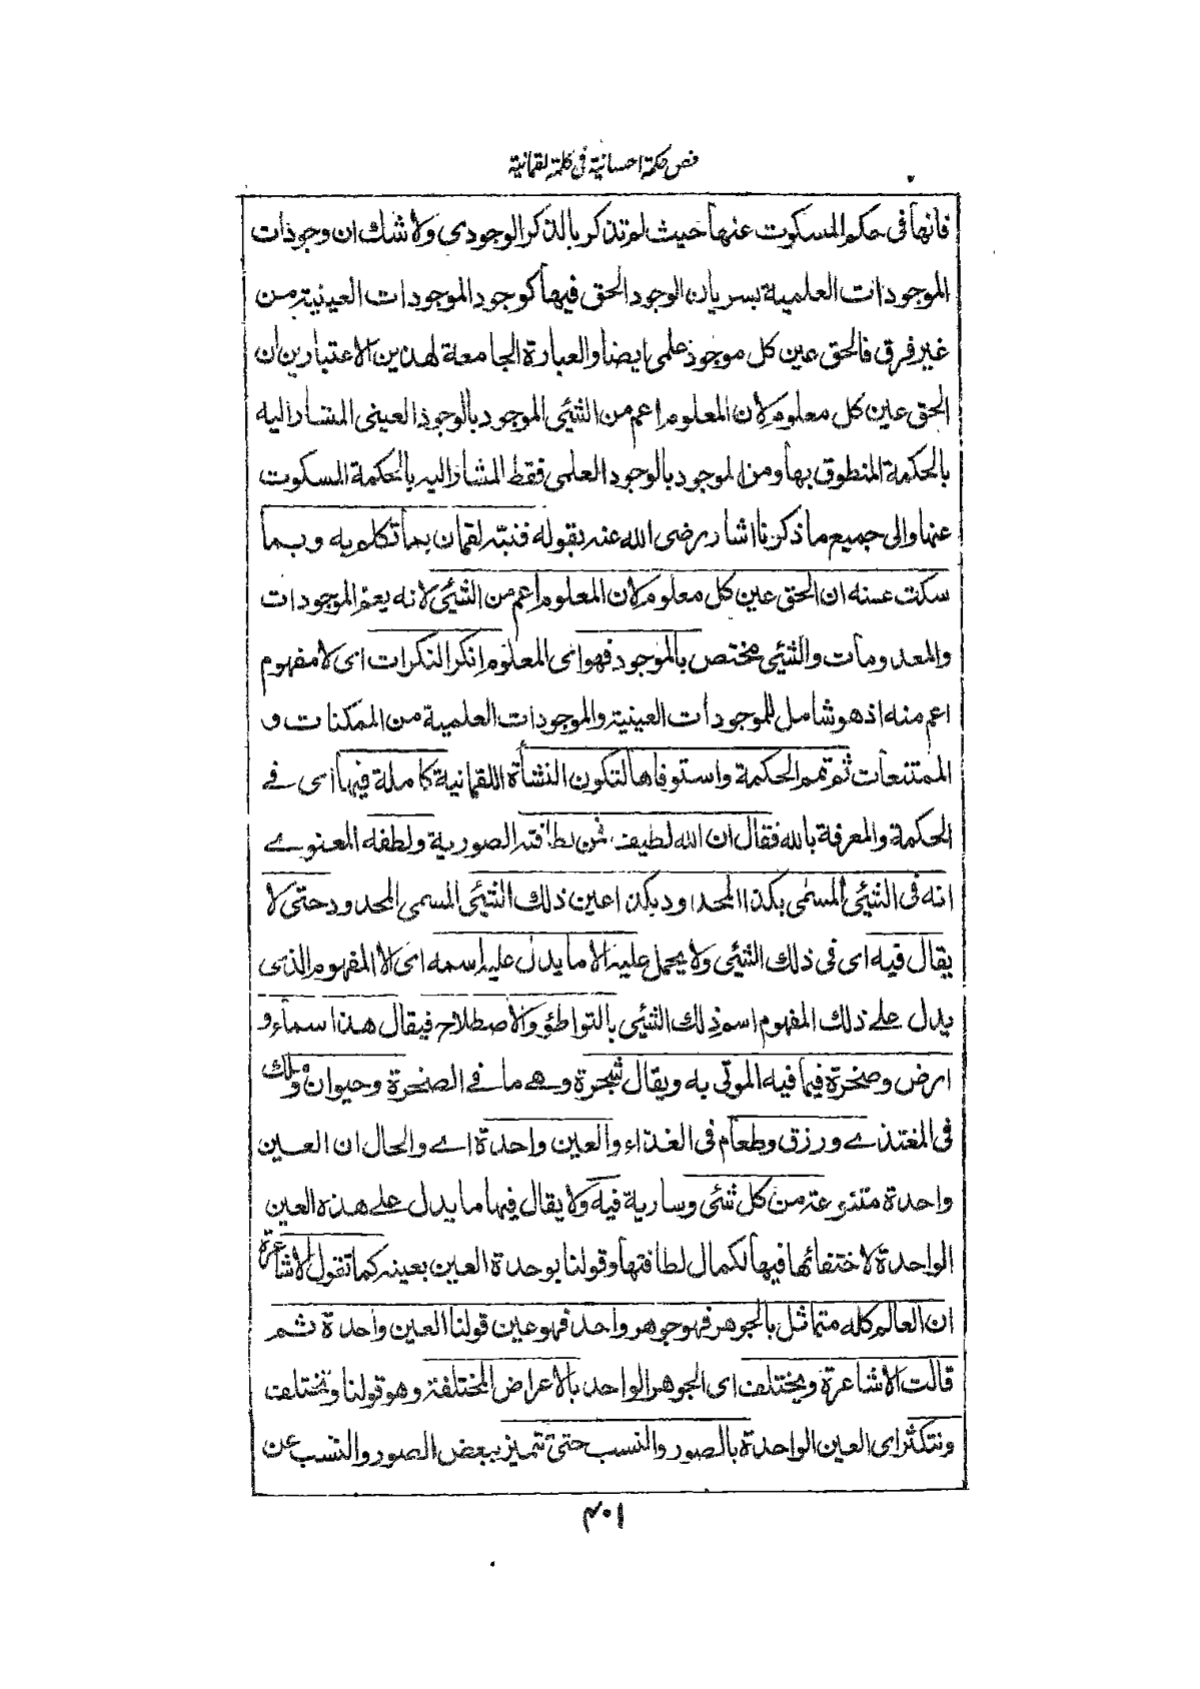 فص حكمة احسانية في كلمة لقمانية
فانها فى حكم المسكوت عنها حيث لم تذكر بالذكر الوجودى ولا شك ان وجودات
الموجودات العلمية بسريان الوجود الحق فيها كوجود الموجودات العينية من
غير فرق فالحق عين كل موجود علمى ايضا والعبارة الجامعة لهذين الاعتبارين ان
الحق عين كل معلوم لان المعلوم اعم من الشئى الموجود بالوجود العينى المشار اليه
بالحكمة المنطوق بها ومن الموجود بالوجود العلمى فقط المشار اليه بالحكمة المسكوت
عنها والى جميع ما ذكرنا اشار رضى الله عنه بقوله فنبّه لقمان بما تكلم به وبما
سكت عنه ان الحق عين كل معلوم لان المعلوم اعم من الشئى لانه يعم الموجودات
والمعدومات والشئى مختص بالموجود فهو اى المعلوم انكر النكرات اى لا مفهوم
اعم منه اذ هو شامل للموجودات العينية والموجودات العلمية من الممكنات و
الممتنعات ثم تمم الحكمة واستوفاها لتكون النشأة اللقمانية كاملة فيها اى في
الحكمة والمعرفة بالله فقال ان الله لطيف فمن لطافته الصورية ولطفه المعنوے
انه فى الشئى المسمى بكذا المحدود بكذا عين ذلك الشئى المسمى المحدود حتى لا
يقال فيه اى فى ذلك الشئى ولا يحمل عليه الا ما يدل عليه اسمه اى الا المفهوم الذى
يدل على ذلك المفهوم اسم ذلك الشئى بالتواطؤ والاصطلاح فيقال هذا سماء و
ارض وصخرة فيما فيه الموتى به ويقال شجرة وهے ما في الصخرة وحيوان وملك
فى المغتذے ورزق وطعام فى الغذاء والعين واحدة اے والحال ان العين
واحدة متنوعة من كل شئى وسارية فيه ولا يقال فيها ما يدل على هذه العين
الواحدة لاختفائها فيها لكمال لطافتها وقولنا بوحدة العين بعينه كما تقول الاشاعرة
ان العالم كله متماثل بالجوهر فهو جوهر واحد فهو عين قولنا العين واحدة ثم
قالت الاشاعرة ويختلف اى الجوهر الواحد بالاعراض المختلفة وهو قولنا ويختلف
وتتكثر اى العين الواحدة بالصور والنسب حتى تتميز ببعض الصور والنسب عن
۴۰۱